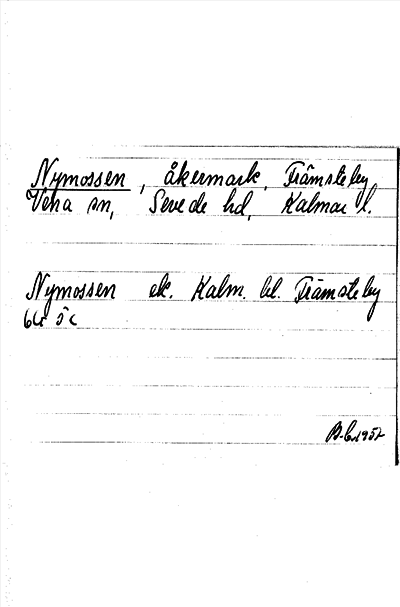 Nymossen, åkermark, Främsteby
Vena sn, Sevede hd, Kalmar l.
Nymossen ek. Kalm. bl. Främsteby
6G 5c
B.C. 1957